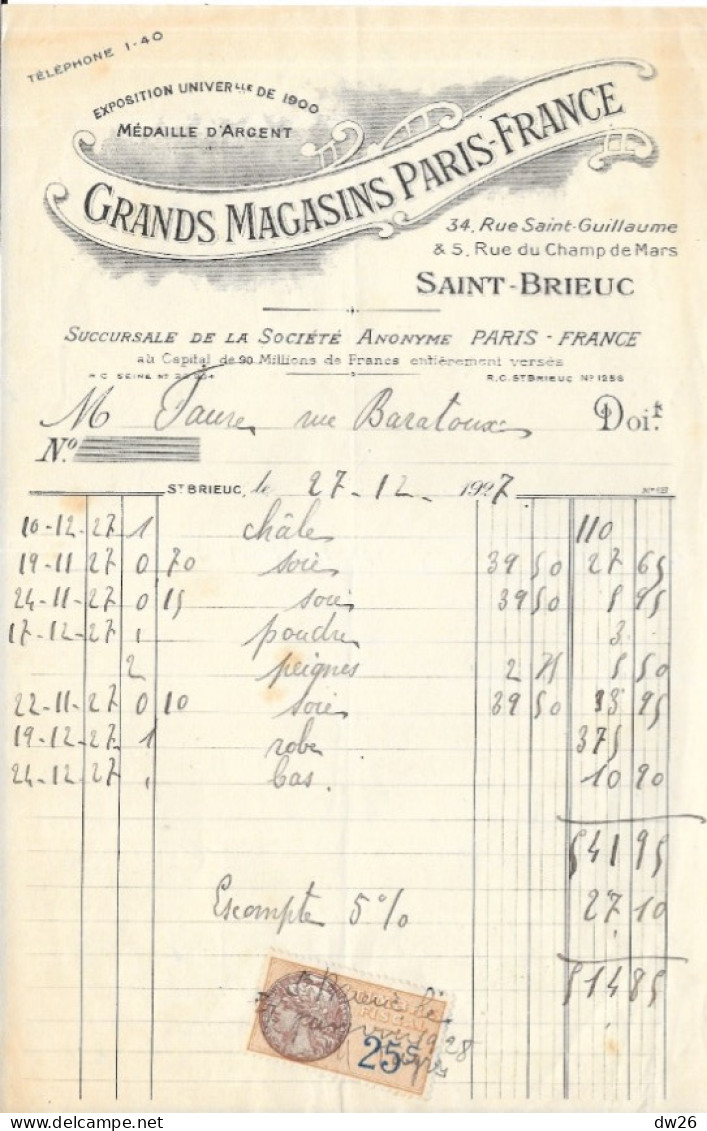 TÉLÉPHONE 1-40
EXPOSITION UNIVERLLE DE 1900
MÉDAILLE D'ARGENT
GRANDS MAGASINS PARIS-FRANCE
34, Rue Saint-Guillaume
& 5, Rue du Champ de Mars
SAINT-BRIEUC
SUCCURSALE DE LA SOCIÉTÉ ANONYME PARIS-FRANCE
au Capital de 90 Millions de Francs entièrement versés
R.C. SEINE Nº R.C. ST BRIEUC Nº 1256
M Faure, rue Baratoux Doit
Nº
ST BRIEUC, le 27-12-1927
10-12-27 1 châle 110
19-11-27 0 70 soie 39 50 27 65
24-11-27 0 15 soie 39 50 5 95
17-12-27 1 poudre 3
2 peignes 2 75 5 50
22-11-27 0 10 soie 39 50 3 95
19-12-27 1 robe 375
24-12-27 1 bas. 10 90
541 95
Escompte 5% 27 10
514 85
FISCAL
1928
25
dw26